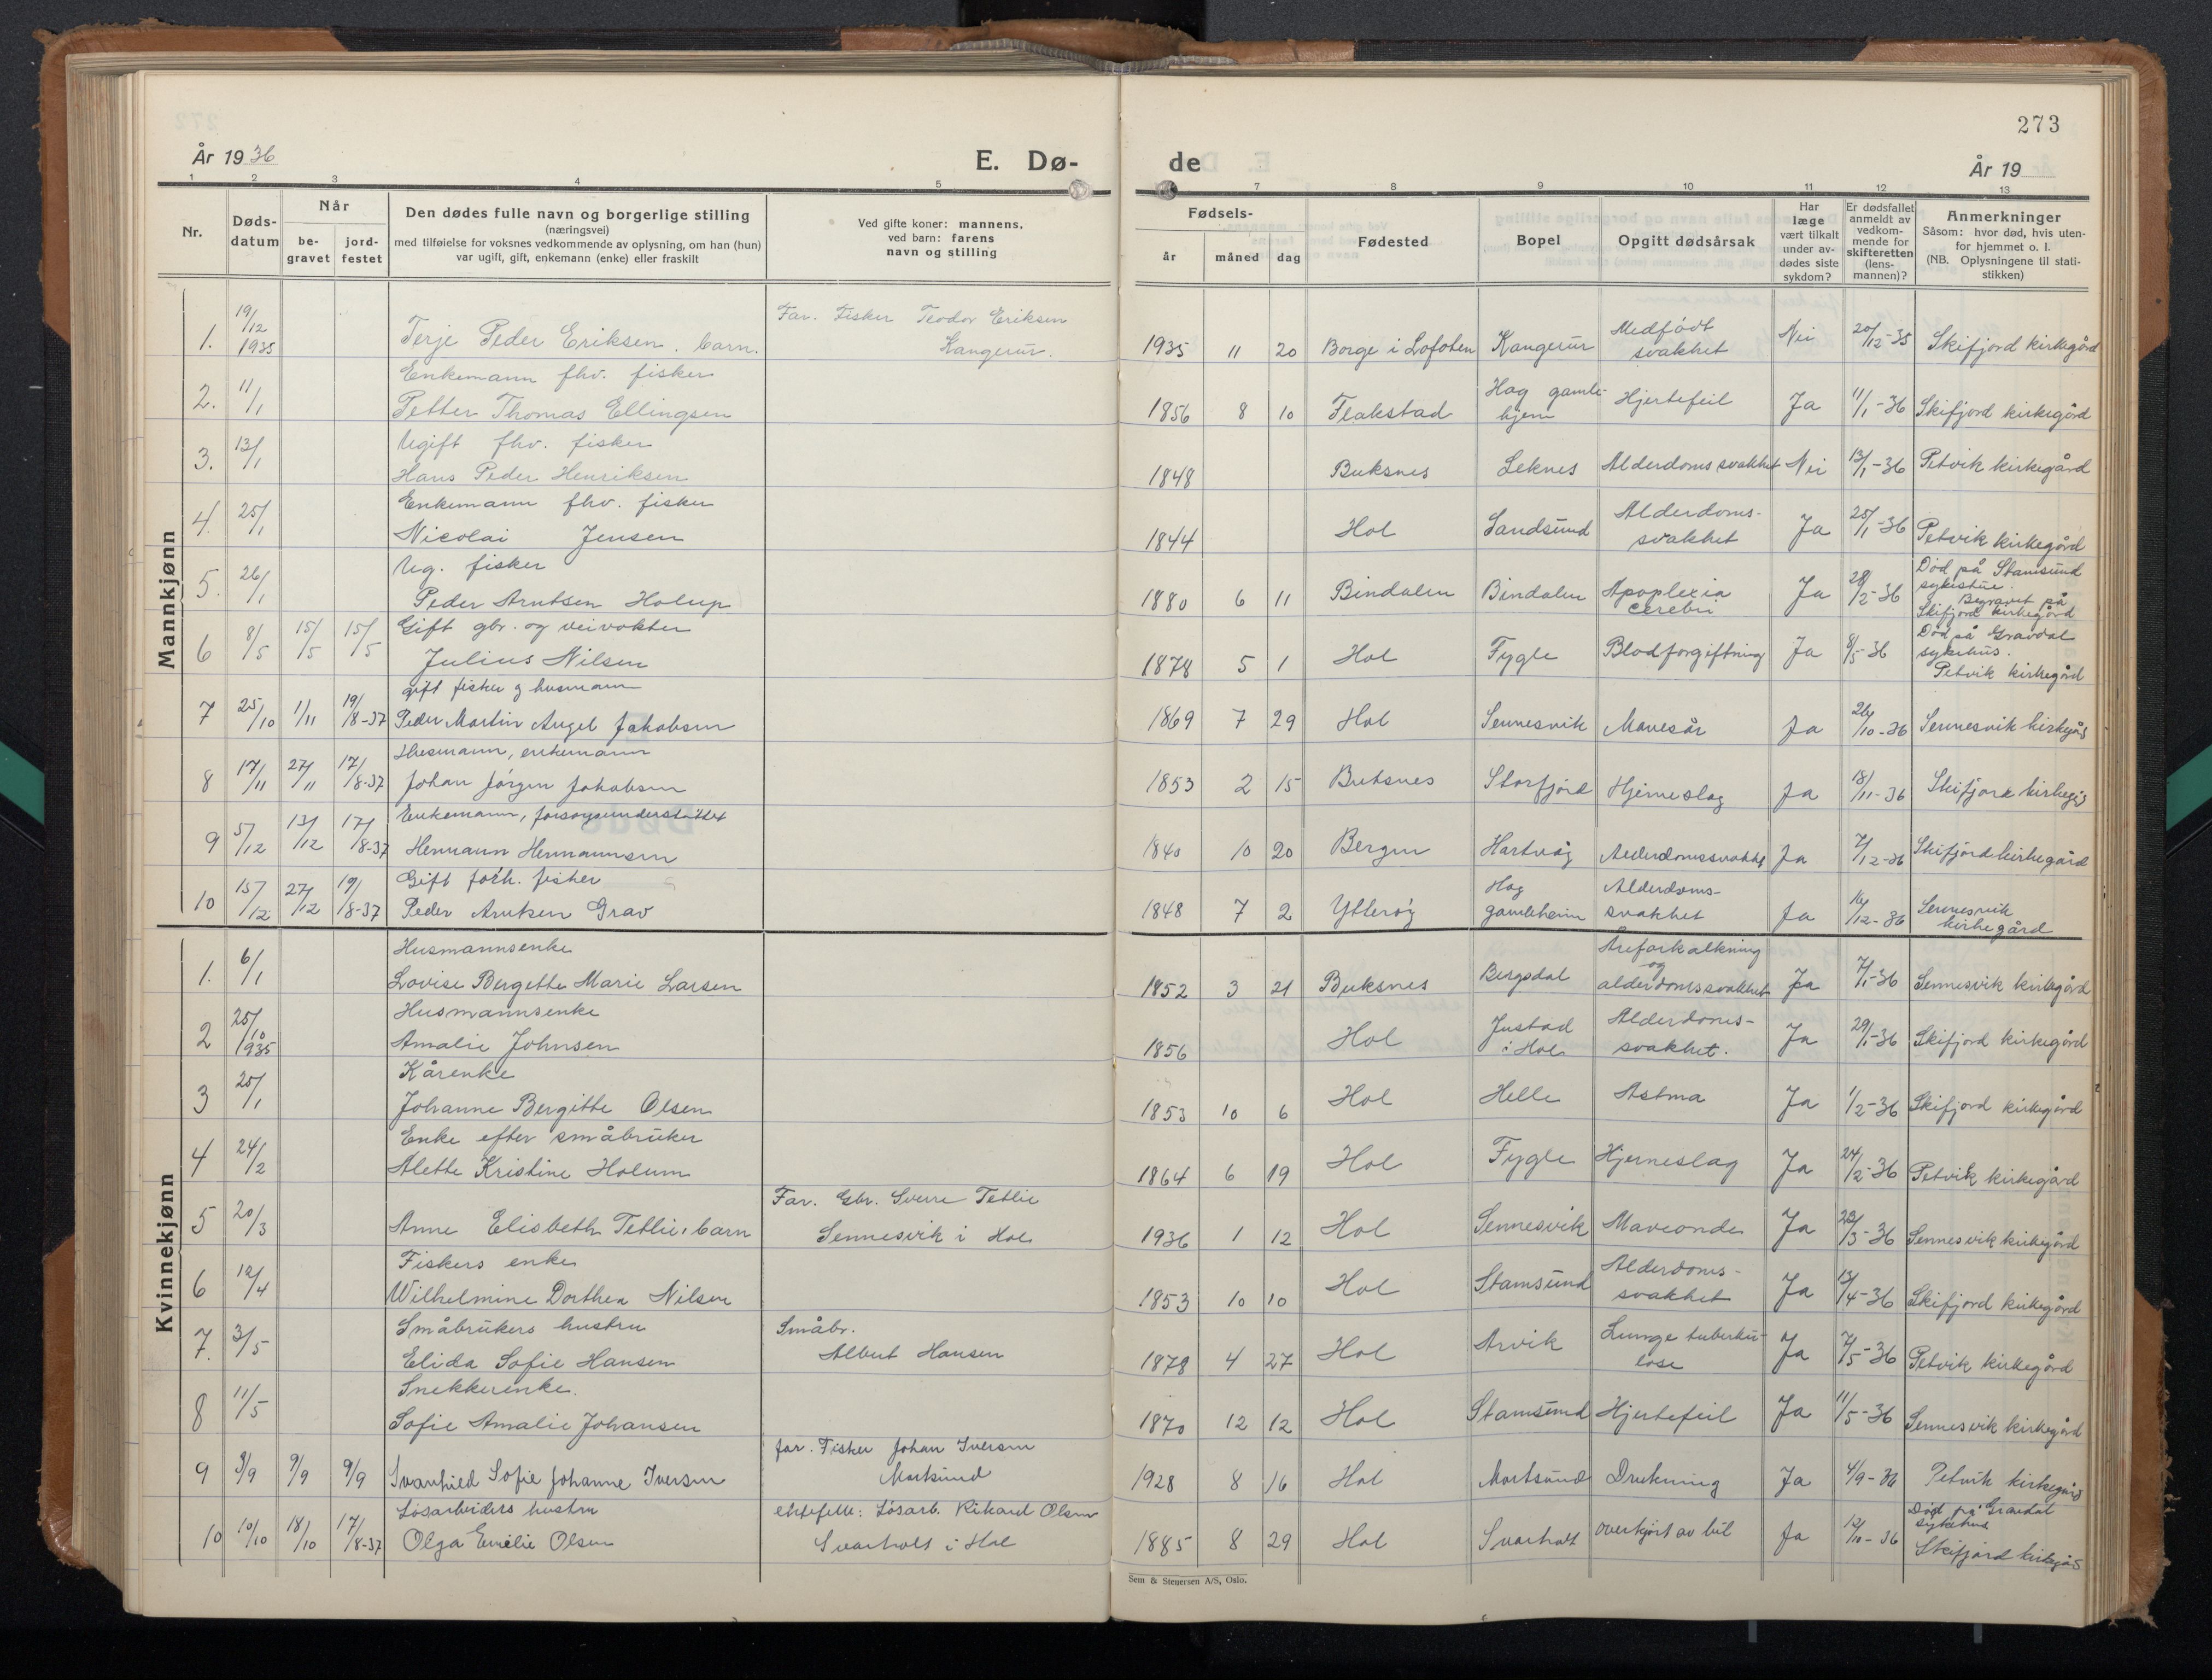 273
År 1936
E. Dø-
de
År 19
1 2 3 4 5 7 8 9 10 11 12 13
Nr.
Døds-
datum
Når
be-
gravet
jord-
festet
Den dødes fulle navn og borgerlige stilling
(næringsvei)
med tilføielse for voksnes vedkommende av oplysning, om han (hun)
var ugift, gift, enkemann (enke) eller fraskilt
Ved gifte koner: mannens,
ved barn: farens
navn og stilling
Fødsels-
år måned dag
Fødested
Bopel
Opgitt dødsårsak
Har
læge
vært tilkalt
under av-
dødes siste
sykdom?
Er dødsfallet
anmeldt av
vedkom-
mende for
skifteretten
(lens-
mannen)?
Anmerkninger
Såsom: hvor død, hvis uten-
for hjemmet o. l.
(NB. Oplysningene til stati-
stikken)
Mannkjønn
1. 19/12 1935 Terje Peder Eriksen. barn.
Far. Fisker Teodor Eriksen
Kangerur.
1935 11 20 Borge i Lofoten Kangerur Medfødt
svakhet
Nei 20/12-35 Skifjord kirkegård
Enkemann fhv. fisker
2. 11/1 Petter Thomas Ellingsen
1856 8 10 Flakstad Hag gamle-
hjem
Hjertefeil Ja 11/1-36 Skifjord kirkegård
Ugift fhv. fisker
3. 13/1 Hans Peder Henriksen
1848 Buksnes Leknes Alderdomssvakhet Nei 13/1-36 Petvik kirkegård
Enkemann fhv. fisker
4. 25/1 Nicolai Jensen
1844 Hol Sandsund Alderdoms-
svakhet
Ja 25/1-36 Petvik kirkegård
Ug. fisker
5. 26/1 Peder Arntsen Holup
1880 6 11 Bindalen Bindalen Apoplexia
cerebri
Ja 28/2-36 Død på Stamsund
sykestue.
Begravet på
Skifjord kirkegård
Gift gbr. og veivokter
6 8/5 15/5 15/5 Julius Nilsen
1878 5 1 Hol Fygle Blodforgiftning Ja 8/5-36 Død på Gravdal
sykehus.
Petvik kirkegård
gift fisker og husmann
7 25/10 1/11 19/8-37 Peder Martin Angel Jakobsen
1869 7 29 Hol Sennesvik Mavesår Ja 26/10-36 Sennesvik kirkegård
Husmann, enkemann
8 17/11 27/11 17/8-37 Johan Jørgen Jakobsen
1853 2 15 Buksnes Storfjord Hjerneslag Ja 18/11-36 Skifjord kirkegård
Enkemann, forsorgsunderstøttet
9 5/12 13/12 17/8-37 Hermann Hermannsen
1840 10 20 Bergen Hartvåg Alderdomssvakhet Ja 7/12-36 Skifjord kirkegård
Gift forh. fisker
10 15/12 27/12 19/8-37 Peder Arntsen Grav
1848 7 2 Ytterøy Hag
gamleheim
Alderdoms-
svakhet
Ja 16/12-36 Sennesvik
kirkegård
Kvinnekjønn
Husmannsenke
1. 6/1 Lovise Bergette Marie Larsen
1852 3 21 Buksnes Bergsdal Åreforkalkning
og
alderdomssvakhet
Ja 7/1-36 Sennesvik kirkegård
Husmannsenke
2 25/10 1935 Amalie Johnsen
1856 Hol Justad
i Hol
Alderdoms-
svakhet.
Ja 29/1-36 Skifjord kirkegård
Kårenke
3 25/1 Johanne Bergitte Olsen
1853 10 6 Hol Helle Astma Ja 1/2-36 Skifjord kirkegård
Enke efter småbruker
4 24/2 Alette Kristine Holum
1864 6 19 Hol Fygle Hjerneslag Ja 24/2-36 Petvik kirkegård
5 20/3 Anne Elisbeth Tetlie, barn
Far. Gbr. Sverre Tetlie
Sennesvik i Hol
1936 1 12 Hol Sennesvik Maveonde Ja 28/3-36 Sennesvik kirkegård
Fiskers enke
6 12/4 Wilhelmine Dorthea Nilsen
1853 10 10 Hol Stamsund Alderdoms-
svakhet
Ja 13/4-36 Skifjord kirkegård
Småbrukers hustru
7. 3/5 Elida Sofie Hansen
Småbr.
Albert Hansen
1878 4 27 Hol Arvik Lunge tuberku-
lose
Ja 7/5-36 Petvik kirkegård
Snekkerenke.
8 11/5 Sofie Amalie Johansen
1870 12 12 Hol Stamsund Hjertefeil Ja 11/5-36 Sennesvik kirkegård
9 3/9 9/9 9/9 Svanhild Sofie Johanne Iversen
far. Fisker Johan Iversen
Mortsund
1928 8 16 Hol Mortsund Drukning Ja 4/9-36 Petvik kirkegård
Løsarbeiders hustru
10 10/10 18/10 17/8-37 Olga Emelie Olsen
ektefelle: Løsarb. Rikard Olsen
Svarholt i Hol
1885 8 29 Hol Svarholt overkjørt av bil Ja 12/10-36 Død på Gravdal
sykehus
Skifjord kirkegård
Sem & Stenersen A/S, Oslo.